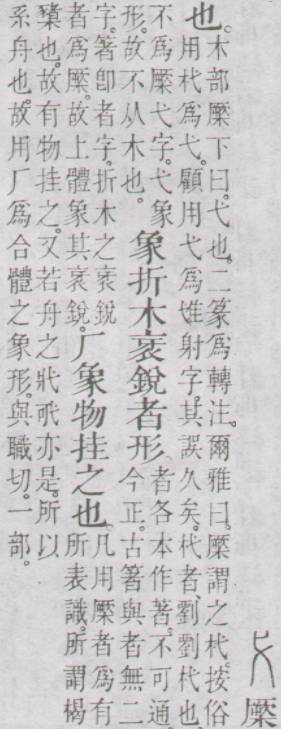 橜
也。
木部橜下曰。弋也。二篆爲轉注。爾雅曰。橜謂之杙。按俗
用杙爲弋。顧用弋爲隿射字。其誤久矣。杙者、劉劉杙也。
不爲橜弋字。弋象
形。故不从木也。
象折木衺銳者形。
者各本作著。不可通。
今正。古箸與者無二
字。箸卽者字。折木之衺銳
者爲橜。故上體象其衺銳。
厂象物挂之也。
凡用橜者爲有
所表識。所謂楬
櫫也。故有物挂之。又若舟之亦是。所以
系舟也。故用厂爲合體之象形。與職切。一部。